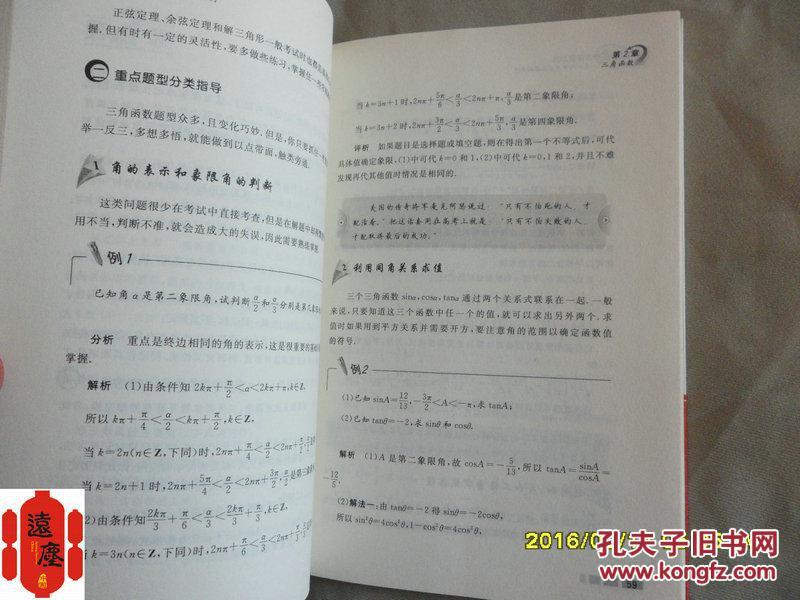 正弦定理、余弦定理和解三角形一般考试时也都
握.但有时有一定的灵活性,要多做些练习,掌握住一些
二 重点题型分类指导
三角函数题型众多,且变化巧妙.但是,你只要抓住
举一反三,多想多悟,就能做到以点带面,触类旁通.
1 角的表示和象限角的判断
这类问题很少在考试中直接考查,但是在解题中却
用不当,判断不准,就会造成大的失误,因此需要熟练掌握.
例1
已知角α是第二象限角,试判断α/2和α/3分别是第几象
分析 重点是终边相同的角的表示,这是很重要的基
掌握.
解析 (1)由条件知 2kπ+π/2<α<2kπ+π,k∈Z,
所以 kπ+π/4<α/2<kπ+π/2,k∈Z,
当 k=2n(n∈Z,下同)时,2nπ+π/4<α/2<2nπ+π/2,
当 k=2n+1 时,2nπ+5π/4<α/2<2nπ+3π/2,α/2是第三象
(2)由条件知2kπ/3+π/6<α/3<2kπ/3+π/3,k∈Z,
当 k=3n(n∈Z,下同)时,2nπ+π/6<α/3<2nπ+
第2章
三角函数
当 k=3n+1 时,2nπ+5π/6<α/3<2nπ+π,α/3是第二象限角;
当 k=3n+2 时,2nπ+3π/2<α/3<2nπ+5π/3,α/3是第四象限角.
评析 如果题目是选择题或填空题,则在得出第一个不等式后,可代
具体值确定象限.(1)中可代 k=0 和 1,(2)中可代 k=0,1 和 2,并且不难
发现再代其他值时情况是相同的.
美国的传奇将军麦克阿瑟说过:“只有不怕死的人,才
配活着.”把这话套用在高考上就是:“只有不怕失败的人,
才配取得最后的成功.”
2 利用同角关系求值
三个三角函数 sinα,cosα,tanα 通过两个关系式联系在一起.一般
来说,只要知道这三个函数中任一个的值,就可以求出另外两个.求
值时如果用到平方关系并需要开方,要注意角的范围以确定函数值
的符号.
例2
(1)已知 sinA=12/13,-3π/2<A<-π,求 tanA;
(2)已知 tanθ=-2,求 sinθ 和 cosθ.
解析 (1)A 是第二象限角,故 cosA=-5/13,所以 tanA=sinA/cosA=
-12/5.
(2)解法一:由 tanθ=-2 得 sinθ=-2cosθ,
所以 sin²θ=4cos²θ,1-cos²θ=4cos²θ,
59
2016/0
遠塵
孔夫子旧书网
www.kongfz.com